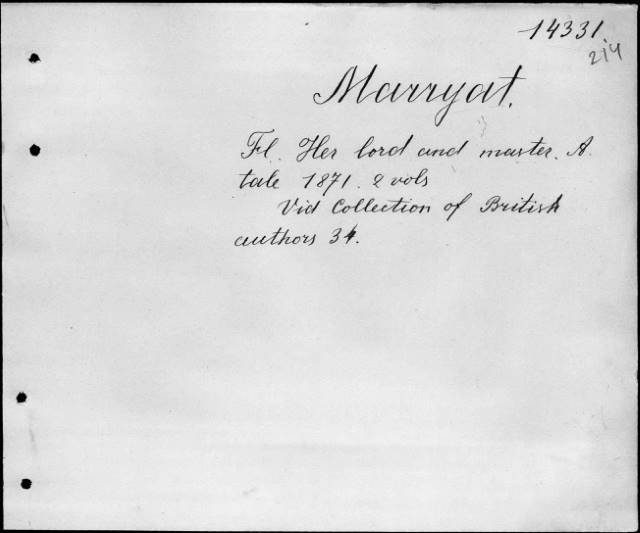 14331
214
Marryat.
Fl. Her lord and master. A
tale 1871. 2 vols
Vid Collection of British
authors 34.